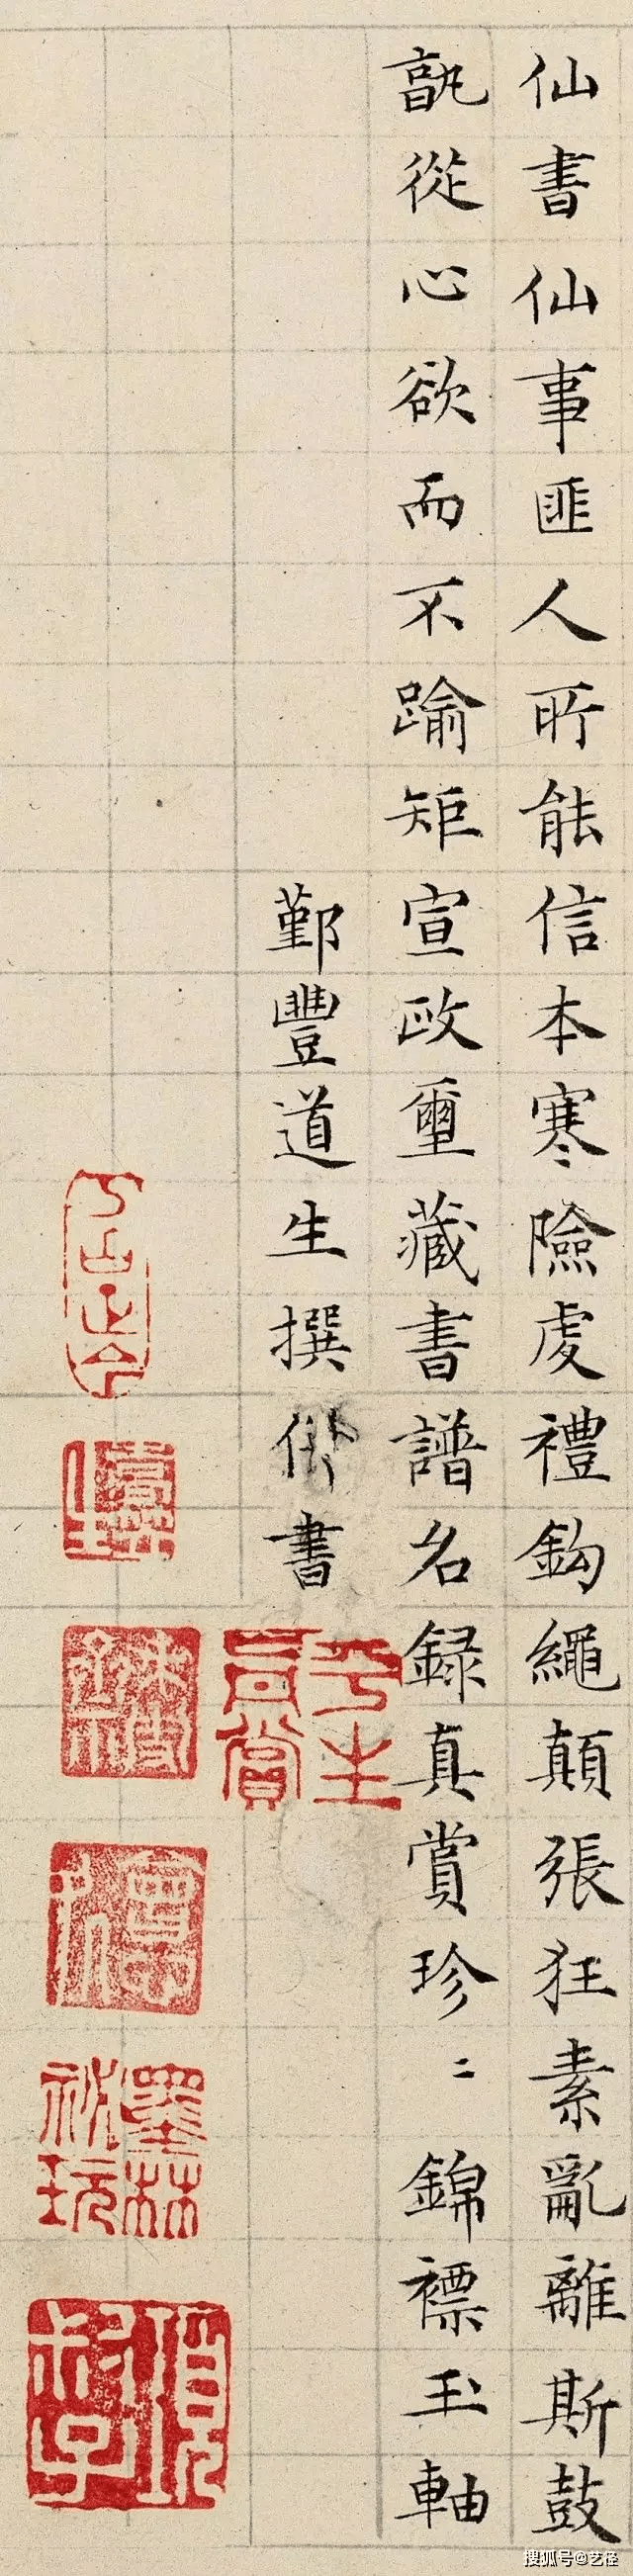 仙書仙事匪人所能信本寒險虔禮鈎繩顛張狂素亂離斯鼓
孰從心欲而不踰矩宣政璽藏書譜名録真賞珍〻錦褾玉軸
鄞豐道生撰併書
平生真賞
墨林祕玩
項叔子
搜狐号@艺径